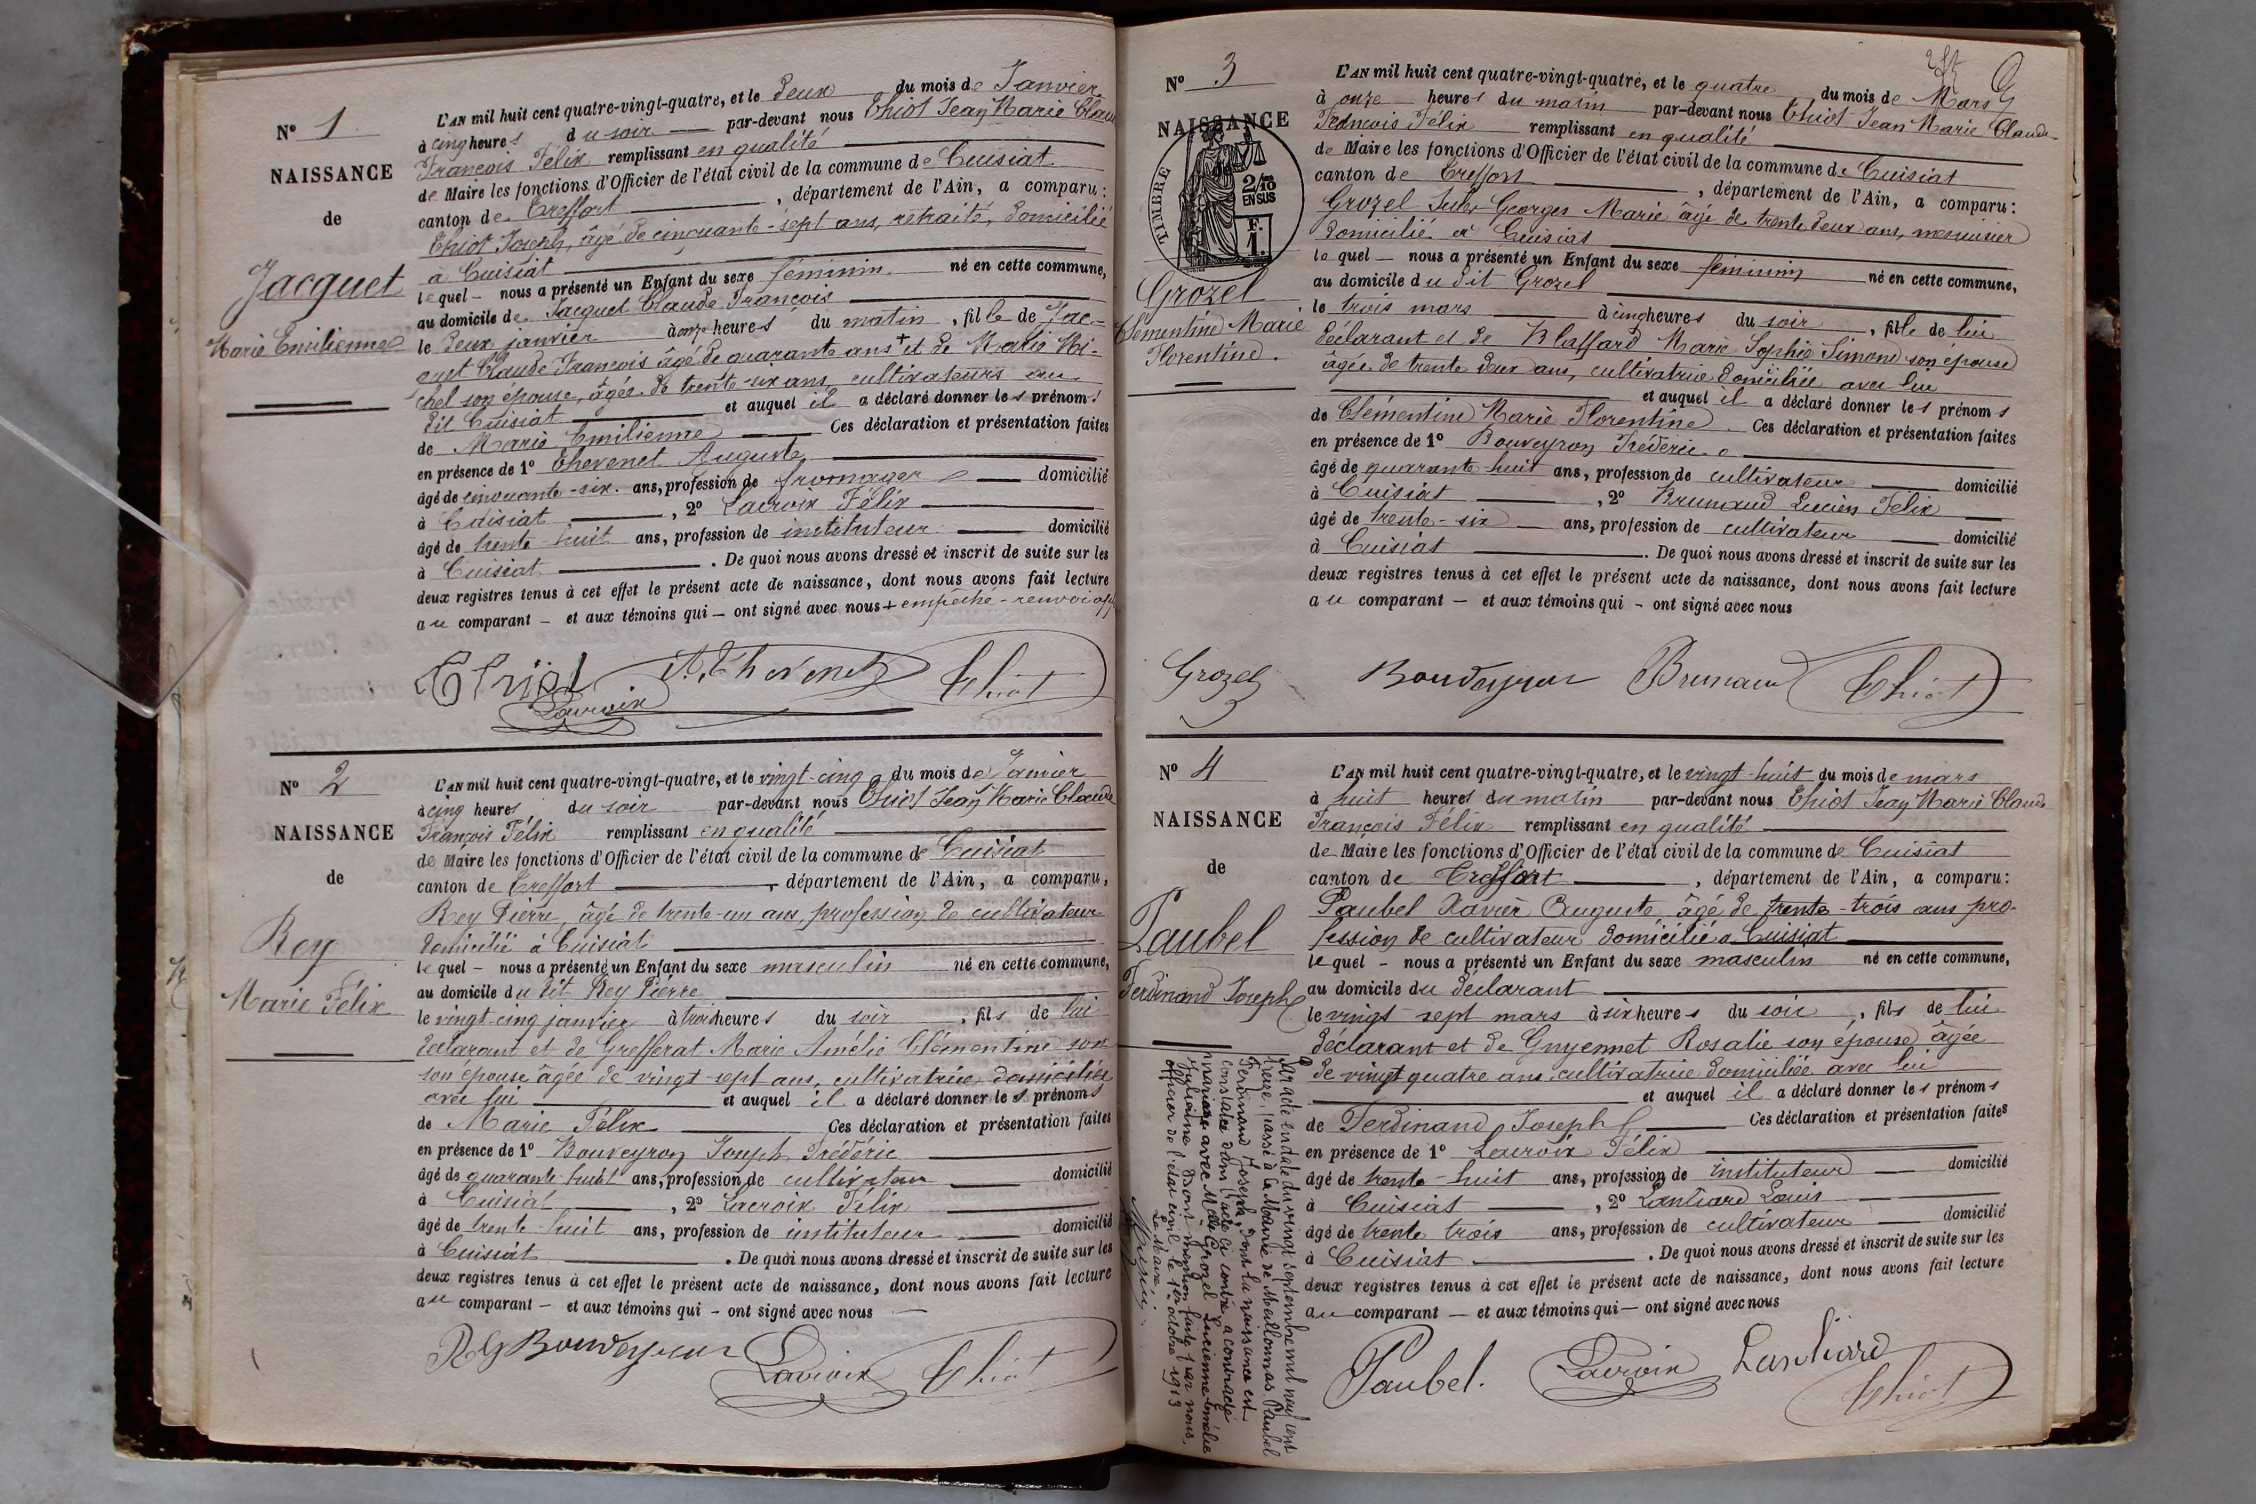 N° 1
NAISSANCE
de
Jacquet
Marie Emilienne
L'AN mil huit cent quatre-vingt-quatre, et le deux du mois de Janvier
à cinq heures du soir par-devant nous Thiot Jean Marie Clau
François Félix remplissant en qualité
de Maire les fonctions d'Officier de l'état civil de la commune de Cuisiat
canton de Treffort, département de l'Ain, a comparu :
Thiot Joseph, âgé de cinquante-sept ans, retraité, domicilié
à Cuisiat
lequel – nous a présenté un Enfant du sexe féminin né en cette commune,
au domicile de Jacquet Claude François
le deux janvier à onze heures du matin, fille de Jac=
quet Claude François âgé de quarante ans + et de Marie Mi-
chel son épouse, âgée de trente-six ans, cultivateurs au
dit Cuisiat et auquel il a déclaré donner les prénoms
de Marie Emilienne Ces déclaration et présentation faites
en présence de 1° Thevenet Auguste
âgé de cinquante-six ans, profession de fromager domicilié
à Cuisiat, 2° Lacroix Félix
âgé de trente-huit ans, profession de instituteur domicilié
à Cuisiat. De quoi nous avons dressé et inscrit de suite sur les
deux registres tenus à cet effet le présent acte de naissance, dont nous avons fait lecture
au comparant – et aux témoins qui – ont signé avec nous + empêché - renvoi app
Thiot A. Thevenet Thiot
Lacroix
N° 2
NAISSANCE
de
Rey
Marie Félix
L'AN mil huit cent quatre-vingt-quatre, et le vingt-cinq du mois de Janvier
à cinq heures du soir par-devant nous Thiot Jean Marie Claude
François Félix remplissant en qualité
de Maire les fonctions d'Officier de l'état civil de la commune de Cuisiat
canton de Treffort, département de l'Ain, a comparu,
Rey Pierre, âgé de trente-un ans, profession de cultivateur
domicilié à Cuisiat
lequel – nous a présenté un Enfant du sexe masculin né en cette commune,
au domicile du dit Rey Pierre
le vingt-cinq janvier à trois heures du soir, fils de lui
déclarant et de Grefferat Marie Amélie Clémentine son
son épouse âgée de vingt-sept ans, cultivatrice domiciliée
avec lui et auquel il a déclaré donner les prénoms
de Marie Félix Ces déclaration et présentation faites
en présence de 1° Bouveyron Joseph Frédéric
âgé de quarante-huit ans, profession de cultivateur domicilié
à Cuisiat, 2° Lacroix Félix
âgé de trente-huit ans, profession de instituteur domicilié
à Cuisiat. De quoi nous avons dressé et inscrit de suite sur les
deux registres tenus à cet effet le présent acte de naissance, dont nous avons fait lecture
au comparant – et aux témoins qui – ont signé avec nous
Rey Bouveyron Lacroix Thiot
N° 3
NAISSANCE
de
TIMBRE
2/10
EN SUS
F.
1.
Grozel
Clémentine Marie
Florentine.
L'AN mil huit cent quatre-vingt-quatre, et le quatre du mois de Mars
à onze heures du matin par-devant nous Thiot Jean Marie Claude
François Félix remplissant en qualité
de Maire les fonctions d'Officier de l'état civil de la commune de Cuisiat
canton de Treffort, département de l'Ain, a comparu :
Grozel Jules Georges Marie âgé de trente deux ans, menuisier
domicilié à Cuisiat
lequel – nous a présenté un Enfant du sexe féminin né en cette commune,
au domicile du dit Grozel
le trois mars à cinq heures du soir, fille de lui
déclarant et de Blaffard Marie Sophie Simone son épouse
âgée de trente deux ans, cultivatrice domiciliée avec lui
et auquel il a déclaré donner les prénoms
de Clémentine Marie Florentine. Ces déclaration et présentation faites
en présence de 1° Bouveyron Frédéric
âgé de quarante-huit ans, profession de cultivateur domicilié
à Cuisiat, 2° Brunaud Lucien Félix
âgé de trente-six ans, profession de cultivateur domicilié
à Cuisiat. De quoi nous avons dressé et inscrit de suite sur les
deux registres tenus à cet effet le présent acte de naissance, dont nous avons fait lecture
au comparant – et aux témoins qui – ont signé avec nous
Grozel Bouveyron Brunaud Thiot
N° 4
NAISSANCE
de
Paubel
Ferdinand Joseph
L'AN mil huit cent quatre-vingt-quatre, et le vingt-huit du mois de mars
à huit heures du matin par-devant nous Thiot Jean Marie Claude
François Félix remplissant en qualité
de Maire les fonctions d'Officier de l'état civil de la commune de Cuisiat
canton de Treffort, département de l'Ain, a comparu :
Paubel Xavier Auguste âgé de trente-trois ans pro-
fession de cultivateur domicilié à Cuisiat
lequel – nous a présenté un Enfant du sexe masculin né en cette commune,
au domicile du déclarant
le vingt-sept mars à six heures du soir, fils de lui
déclarant et de Guyennet Rosalie son épouse âgée
de vingt quatre ans cultivatrice domiciliée avec lui
et auquel il a déclaré donner les prénoms
de Ferdinand Joseph Ces déclaration et présentation faites
en présence de 1° Lacroix Félix
âgé de trente-huit ans, profession de instituteur domicilié
à Cuisiat, 2° Lantiard Louis
âgé de trente trois ans, profession de cultivateur domicilié
à Cuisiat. De quoi nous avons dressé et inscrit de suite sur les
deux registres tenus à cet effet le présent acte de naissance, dont nous avons fait lecture
au comparant – et aux témoins qui – ont signé avec nous
Paubel. Lacroix Lantiard
Thiot
Par acte en date du vingt septembre mil neuf cent
treize, passé à la Mairie de Meillonnas, Paubel
Ferdinand Joseph, dont la naissance est
constatée dans l'acte ci contre, a contracté
mariage avec Mlle Grozel Lucienne Amélie
Julienne. Dont mention faite par nous,
officier de l'état civil le 1er octobre 1913
Le Maire,